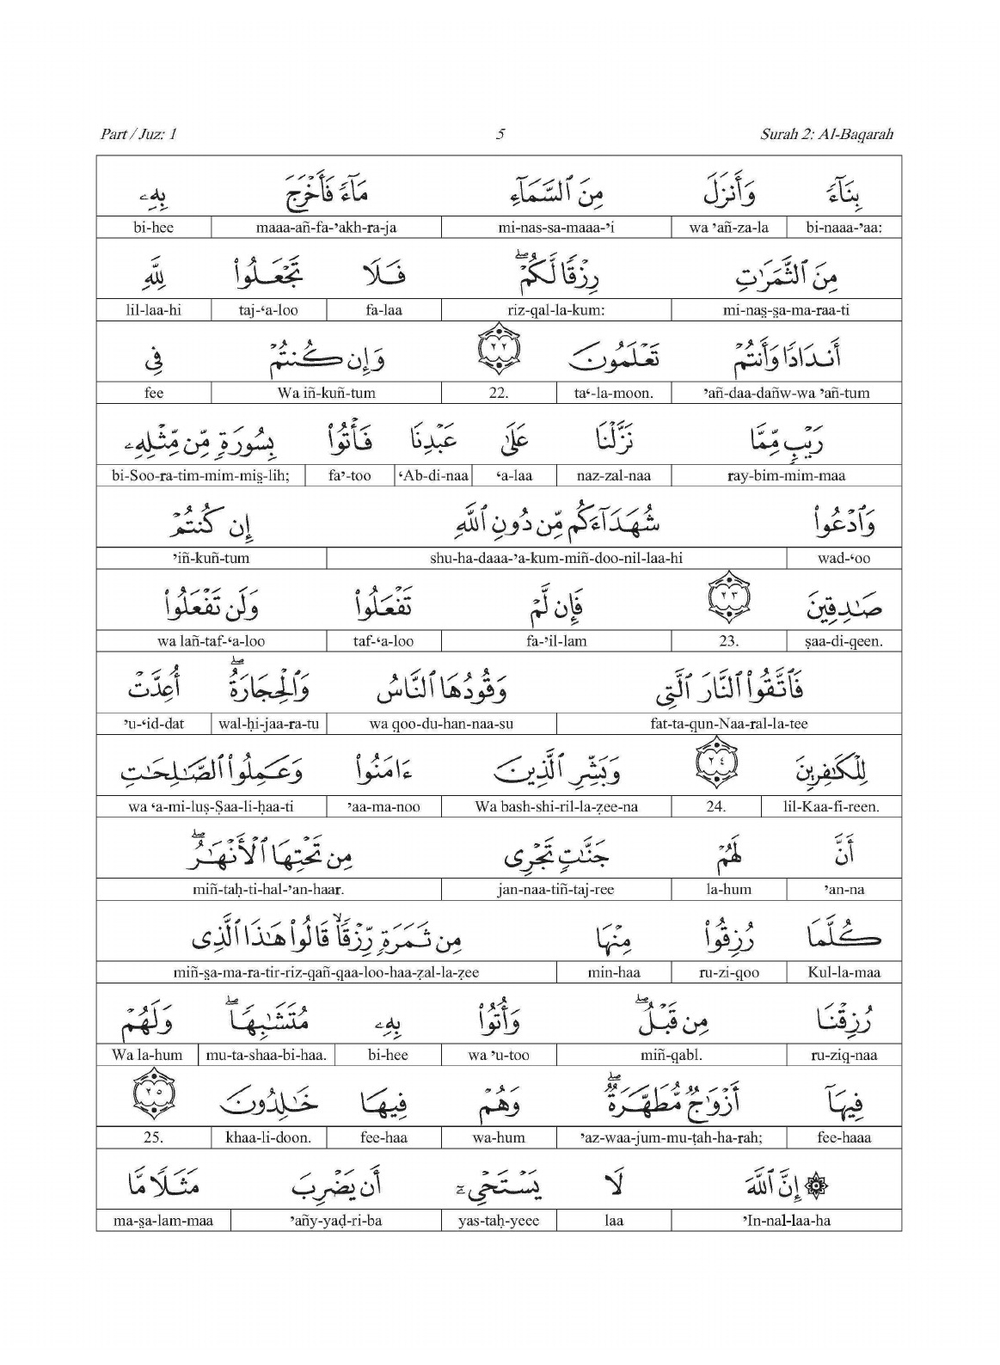 Part / Juz: 1 5 Surah 2: Al-Baqarah
بِنَآءً وَأَنزَلَ مِنَ ٱلسَّمَآءِ مَآءً فَأَخْرَجَ بِهِۦ
bi-hee maaa-añ-fa-’akh-ra-ja mi-nas-sa-maaa-’i wa ’añ-za-la bi-naaa-’aa:
مِنَ ٱلثَّمَرَٰتِ رِزْقًا لَّكُمْ ۖ فَلَا تَجْعَلُوا۟ لِلَّهِ
lil-laa-hi taj-‘a-loo fa-laa riz-qal-la-kum: mi-nas̱-s̱a-ma-raa-ti
أَندَادًا وَأَنتُمْ تَعْلَمُونَ ٢٢ وَإِن كُنتُمْ فِى
fee Wa iñ-kuñ-tum 22. ta‘-la-moon. ’añ-daa-dañw-wa ’añ-tum
رَيْبٍ مِّمَّا نَزَّلْنَا عَلَىٰ عَبْدِنَا فَأْتُوا۟ بِسُورَةٍ مِّن مِّثْلِهِۦ
bi-Soo-ra-tim-mim-mis̱-lih; fa’-too ‘Ab-di-naa ‘a-laa naz-zal-naa ray-bim-mim-maa
وَٱدْعُوا۟ شُهَدَآءَكُم مِّن دُونِ ٱللَّهِ إِن كُنتُمْ
’iñ-kuñ-tum shu-ha-daaa-’a-kum-miñ-doo-nil-laa-hi wad-‘oo
صَٰدِقِينَ ٢٣ فَإِن لَّمْ تَفْعَلُوا۟ وَلَن تَفْعَلُوا۟
wa lañ-taf-‘a-loo taf-‘a-loo fa-’il-lam 23. ṣaa-di-qeen.
فَٱتَّقُوا۟ ٱلنَّارَ ٱلَّتِى وَقُودُهَا ٱلنَّاسُ وَٱلْحِجَارَةُ ۖ أُعِدَّتْ
’u-‘id-dat wal-ḥi-jaa-ra-tu wa qoo-du-han-naa-su fat-ta-qun-Naa-ral-la-tee
لِلْكَٰفِرِينَ ٢٤ وَبَشِّرِ ٱلَّذِينَ ءَامَنُوا۟ وَعَمِلُوا۟ ٱلصَّٰلِحَٰتِ
wa ‘a-mi-luṣ-Ṣaa-li-ḥaa-ti ’aa-ma-noo Wa bash-shi-ril-la-ẕee-na 24. lil-Kaa-fi-reen.
أَنَّ لَهُمْ جَنَّٰتٍ تَجْرِى مِن تَحْتِهَا ٱلْأَنْهَٰرُ ۖ
miñ-taḥ-ti-hal-’an-haar. jan-naa-tiñ-taj-ree la-hum ’an-na
كُلَّمَا رُزِقُوا۟ مِنْهَا مِن ثَمَرَةٍ رِّزْقًا ۙ قَالُوا۟ هَٰذَا ٱلَّذِى
miñ-s̱a-ma-ra-tir-riz-qañ-qaa-loo-haa-ẕal-la-ẕee min-haa ru-zi-qoo Kul-la-maa
رُزِقْنَا مِن قَبْلُ ۖ وَأُتُوا۟ بِهِۦ مُتَشَٰبِهًا ۖ وَلَهُمْ
Wa la-hum mu-ta-shaa-bi-haa. bi-hee wa ’u-too miñ-qabl. ru-ziq-naa
فِيهَآ أَزْوَٰجٌ مُّطَهَّرَةٌ ۖ وَهُمْ فِيهَا خَٰلِدُونَ ٢٥
25. khaa-li-doon. fee-haa wa-hum ’az-waa-jum-mu-ṭah-ha-rah; fee-haaa
۞ إِنَّ ٱللَّهَ لَا يَسْتَحْىِۦٓ أَن يَضْرِبَ مَثَلًا مَّا
ma-s̱a-lam-maa ’añy-yaḍ-ri-ba yas-taḥ-yeee laa ’In-nal-laa-ha